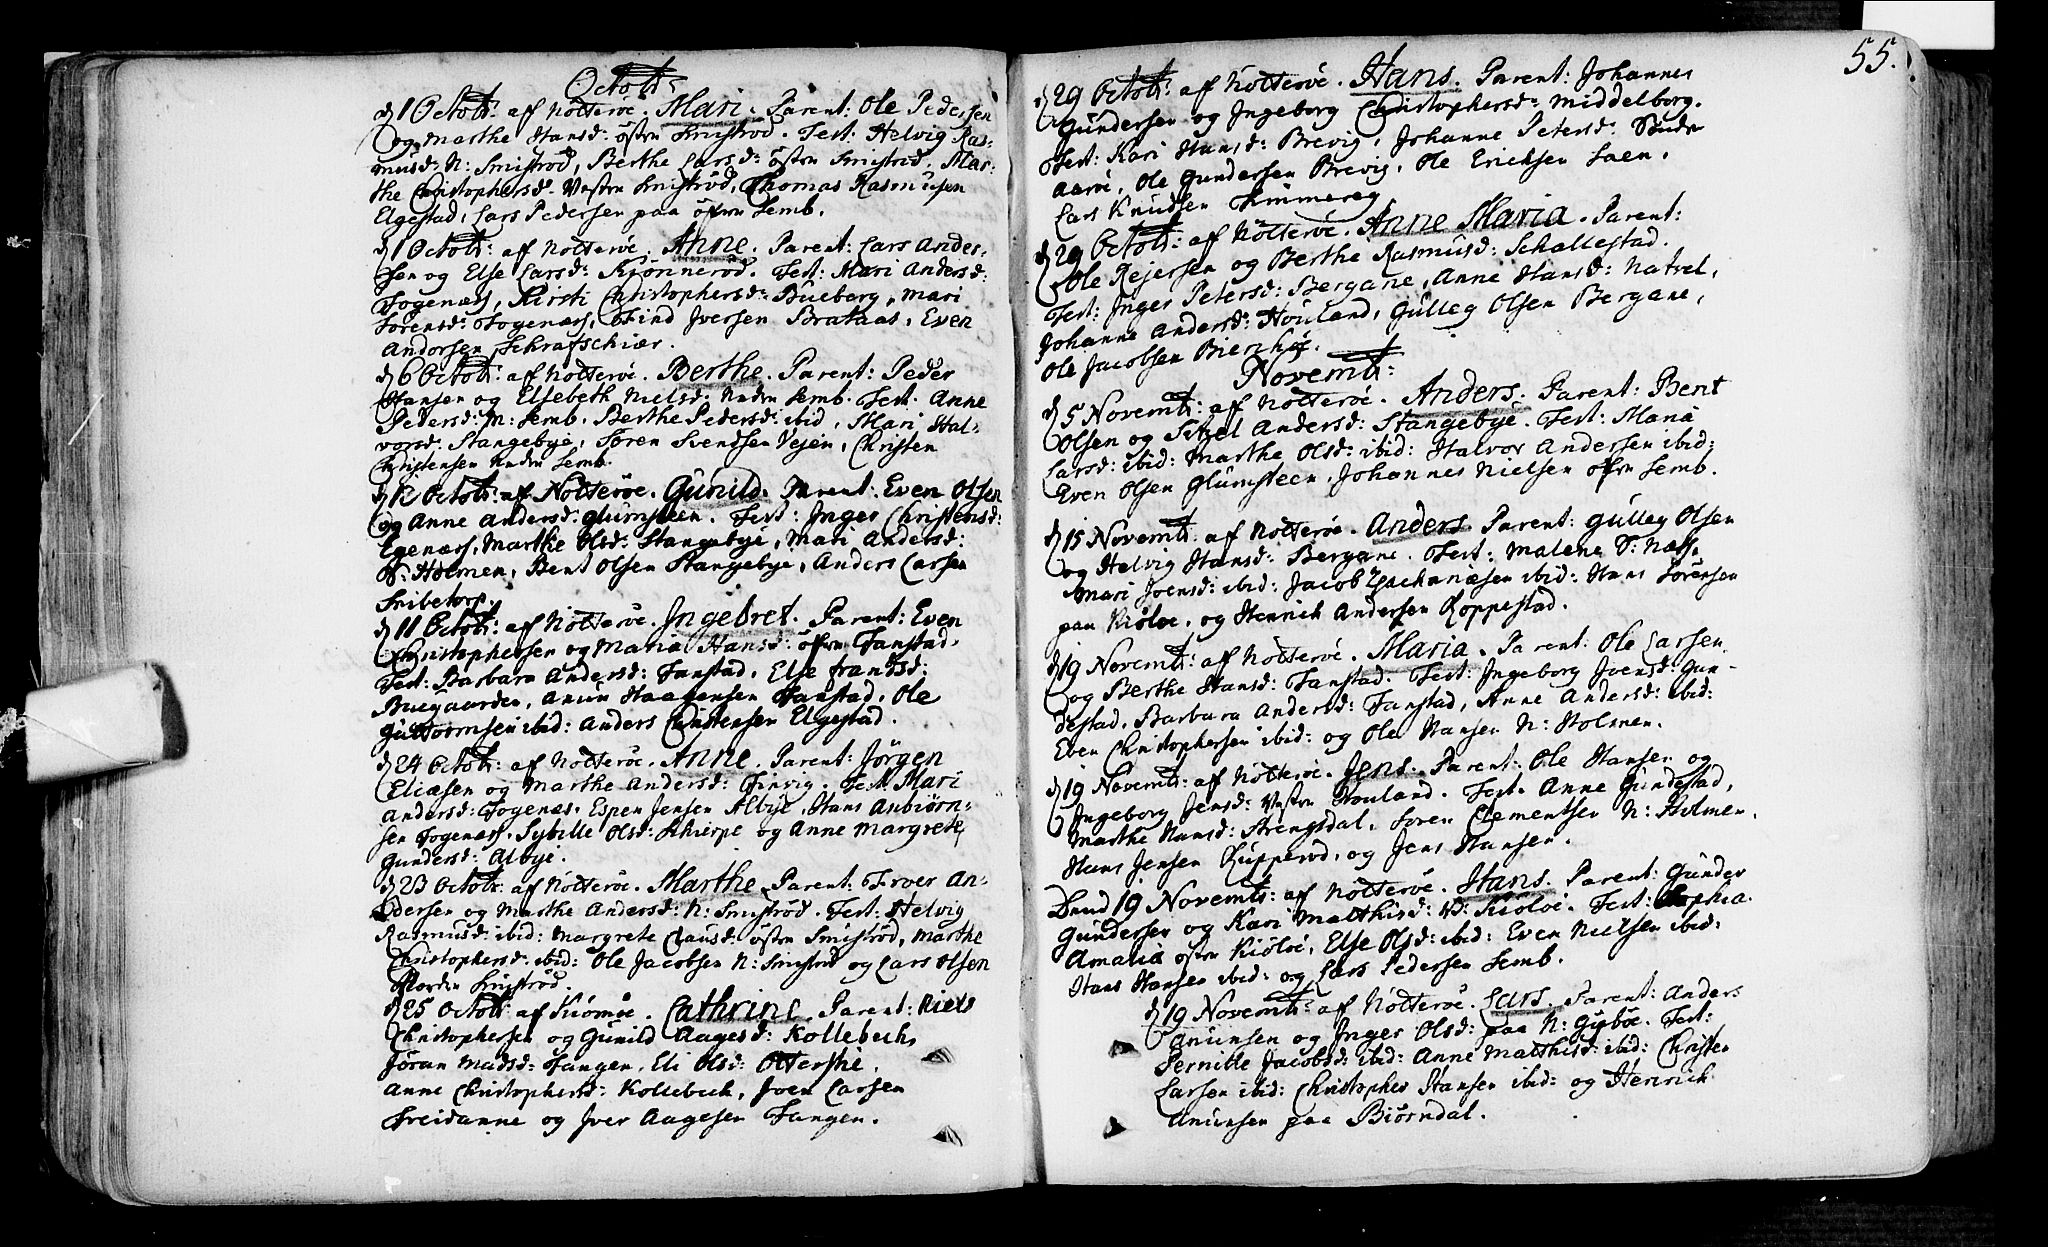 Octobr:
d 1 Octobr: af Nötteröe. Mari. Parent: Ole Pedersen
og Marthe Hansd: östre Smiströd. Test: Helvig Ras-
musd: N: Smiströd, Berthe Larsd: östre Smiströd. Mar-
the Christophersd: Vestre Smiströd, Thomas Rasmusen
Elgestad, Lars Pedersen paa öfre Semb.
d 1 Octobr: af Nötteröe. Anne. Parent: Lars Ander-
sen og Else Larsd: Kjönneröd. Test: Mari Andersd:
Fogenæss, Kirsti Christophersd: Bueberg, Mari
Sörensd: Fogenæss, Find Iversen Brataas, Even
Andersen Schrafschiær.
d 6 Octobr: af Nötteröe. Berthe. Parent: Peder
Hansen og Elsebeth Nielsd: Nedre Semb. Test: Anne
Pedersd: M: Semb. Berthe Pedersd: ibid, Mari Hal-
vorsd: Stangebye, Sören Svendsen Vejen, Christen
Christensen Nedre Semb.
d 12 Octobr: af Nötteröe. Gunild. Parent: Even Olsen
og Anne Andersd: Glumsteen. Test: Inger Christensd:
Egenæss, Marthe Olsd: Stangebye, Mari Andersd:
N: Holmen, Bent Olsen Stangebye, Anders Larsen
Snibetorp.
d 11 Octobr: af Nötteröe. Ingebret. Parent: Even
Christophersen og Maria Hansd: öfre Tanstad.
Test: Barbara Andersd: Tanstad, Else Frandsd:
Buegaarden, Anun Haagensen Tanstad, Ole
Guttormsen ibid: Anders Christensen Elgestad.
d 24 Octobr: af Nötteröe. Anne. Parent: Jörgen
Eliæsen og Marthe Andersd: Finvig. Test: Mari
Andersd: Fogenæs. Espen Jensen Albye, Hans Anbiörn-
sen Fogenæss. Sybille Olsd: Skierpe og Anne Margrete
Gundersd: Albye.
d 23 Octobr: af Nötteröe. Marthe. Parent: Troer An-
dersen og Marthe Andersd: N: Smiströd. Test: Helvig
Rasmusd: ibid: Margrete Clausd: östre Smiströd, Marthe
Christophersd: ibid: Ole Jacobsen N: Smiströd og Lars Olsen
Norden Smiströd.
d 25 Octobr: af Kiömöe. Cathrine. Parent: Niels
Christophersen og Gunild Aagesd: Kollebech,
Jöran Madsd: Tangen, Eli Olsd: Otterstie.
Anne Christophersd: Kollebech, Joen Larsen
Treidanne og Iver Aagesen Tangen.
55.
d 29 Octobr: af Nötteröe. Hans. Parent: Johannes
Gundersen og Ingeborg Christophersd: Middelborg.
Test: Kari Hansd: Brevig, Johanne Petersd: Sundr
Aaröe, Ole Gundersen Brevig, Ole Ericksen Saen,
Lars Knudsen Himmereg
d 29 Octobr: af Nötteröe. Anne Maria. Parent:
Ole Rejersen og Berthe Rasmusd: Schallestad.
Test: Inger Petersd: Bergane, Anne Hansd: Natvel,
Johanne Andersd: Houland, Gulleg Olsen Bergane,
Ole Jacobsen Bierkøe.
Novembr:
d 5 Novembr: af Nötteröe. Anders. Parent: Bent
Olsen og Sitzel Andersd: Stangebye. Test: Maria
Larsd: ibid: Marthe Olsd: ibid: Halvor Andersen ibid:
Even Olsen Glumsteen, Johannes Nielsen öfre Semb.
d 15 Novembr: af Nötteröe. Anders. Parent: Gulleg Olsen
og Helvig Hansd: Bergane. Test: Malene S: Næss.
Mari Joensd: ibid: Jacob Zachariæsen ibid: Hans Sörensen
paa Kiölöe, og Henrich Andersen Koppestad.
d 19 Novembr: af Nötteröe. Maria. Parent: Ole Larsen
og Berthe Hansd: Tanstad. Test: Ingeborg Ivensd: Gun-
destad, Barbara Andersd: Tanstad, Anne Andersd: ibid:
Even Christophersen ibid: og Ole Hansen N: Holmen.
d 19 Novembr: af Nötteröe. Jens. Parent: Ole Hansen og
Ingeborg Jensd: Vestre Houland. Test: Anne Gundestad,
Marthe Hansd: Strengsdal, Sören Clementsen N: Holmen,
Hans Jensen Kupperöd, og Jens Hansen.
Dend 19 Novembr: af Nötteröe. Hans. Parent: Gunder
Gundersen og Kari Matthisd: V: Kiölöe. Test: Sophia
Amalia östre Kiölöe, Else Olsd: ibid: Even Nielsen ibid:
Hans Hansen ibid: og Lars Pedersen Semb.
d 19 Novembr: af Nötteröe. Lars. Parent: Anders
Anunsen og Inger Olsd: paa N: Gyböe. Test:
Pernille Jacobsd: ibid: Anne Matthisd: ibid: Christen
Larsen ibid: Christopher Hansen ibid: og Henrich
Anunsen paa Biörndal.